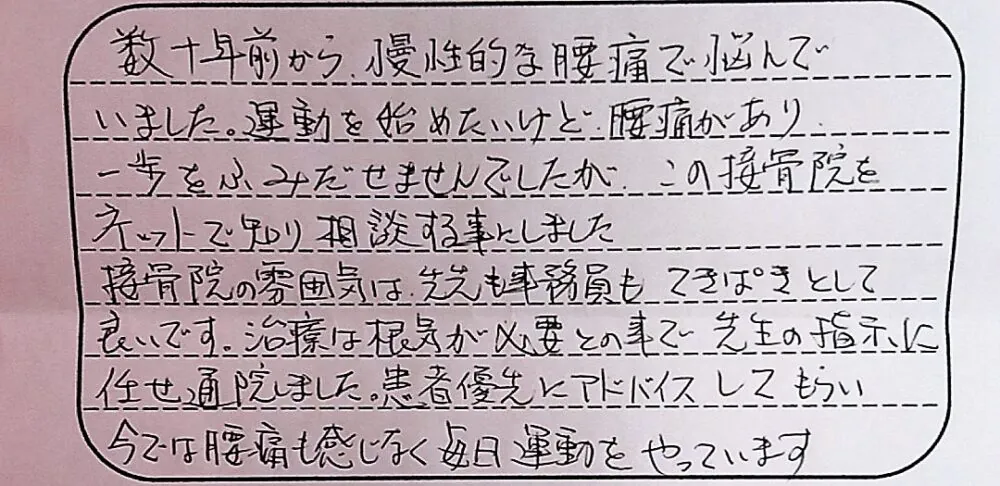 数十年前から、慢性的な腰痛で悩んで
いました。運動を始めたいけど、腰痛があり、
一歩をふみだせませんでしたが、この接骨院を
ネットで知り相談する事にしました
接骨院の雰囲気は、先生も事務員もてきぱきとして
良いです。治療は根気が必要との事で先生の指示に
任せ通院しました。患者優先にアドバイスしてもらい
今では腰痛も感じなく毎日運動をやっています